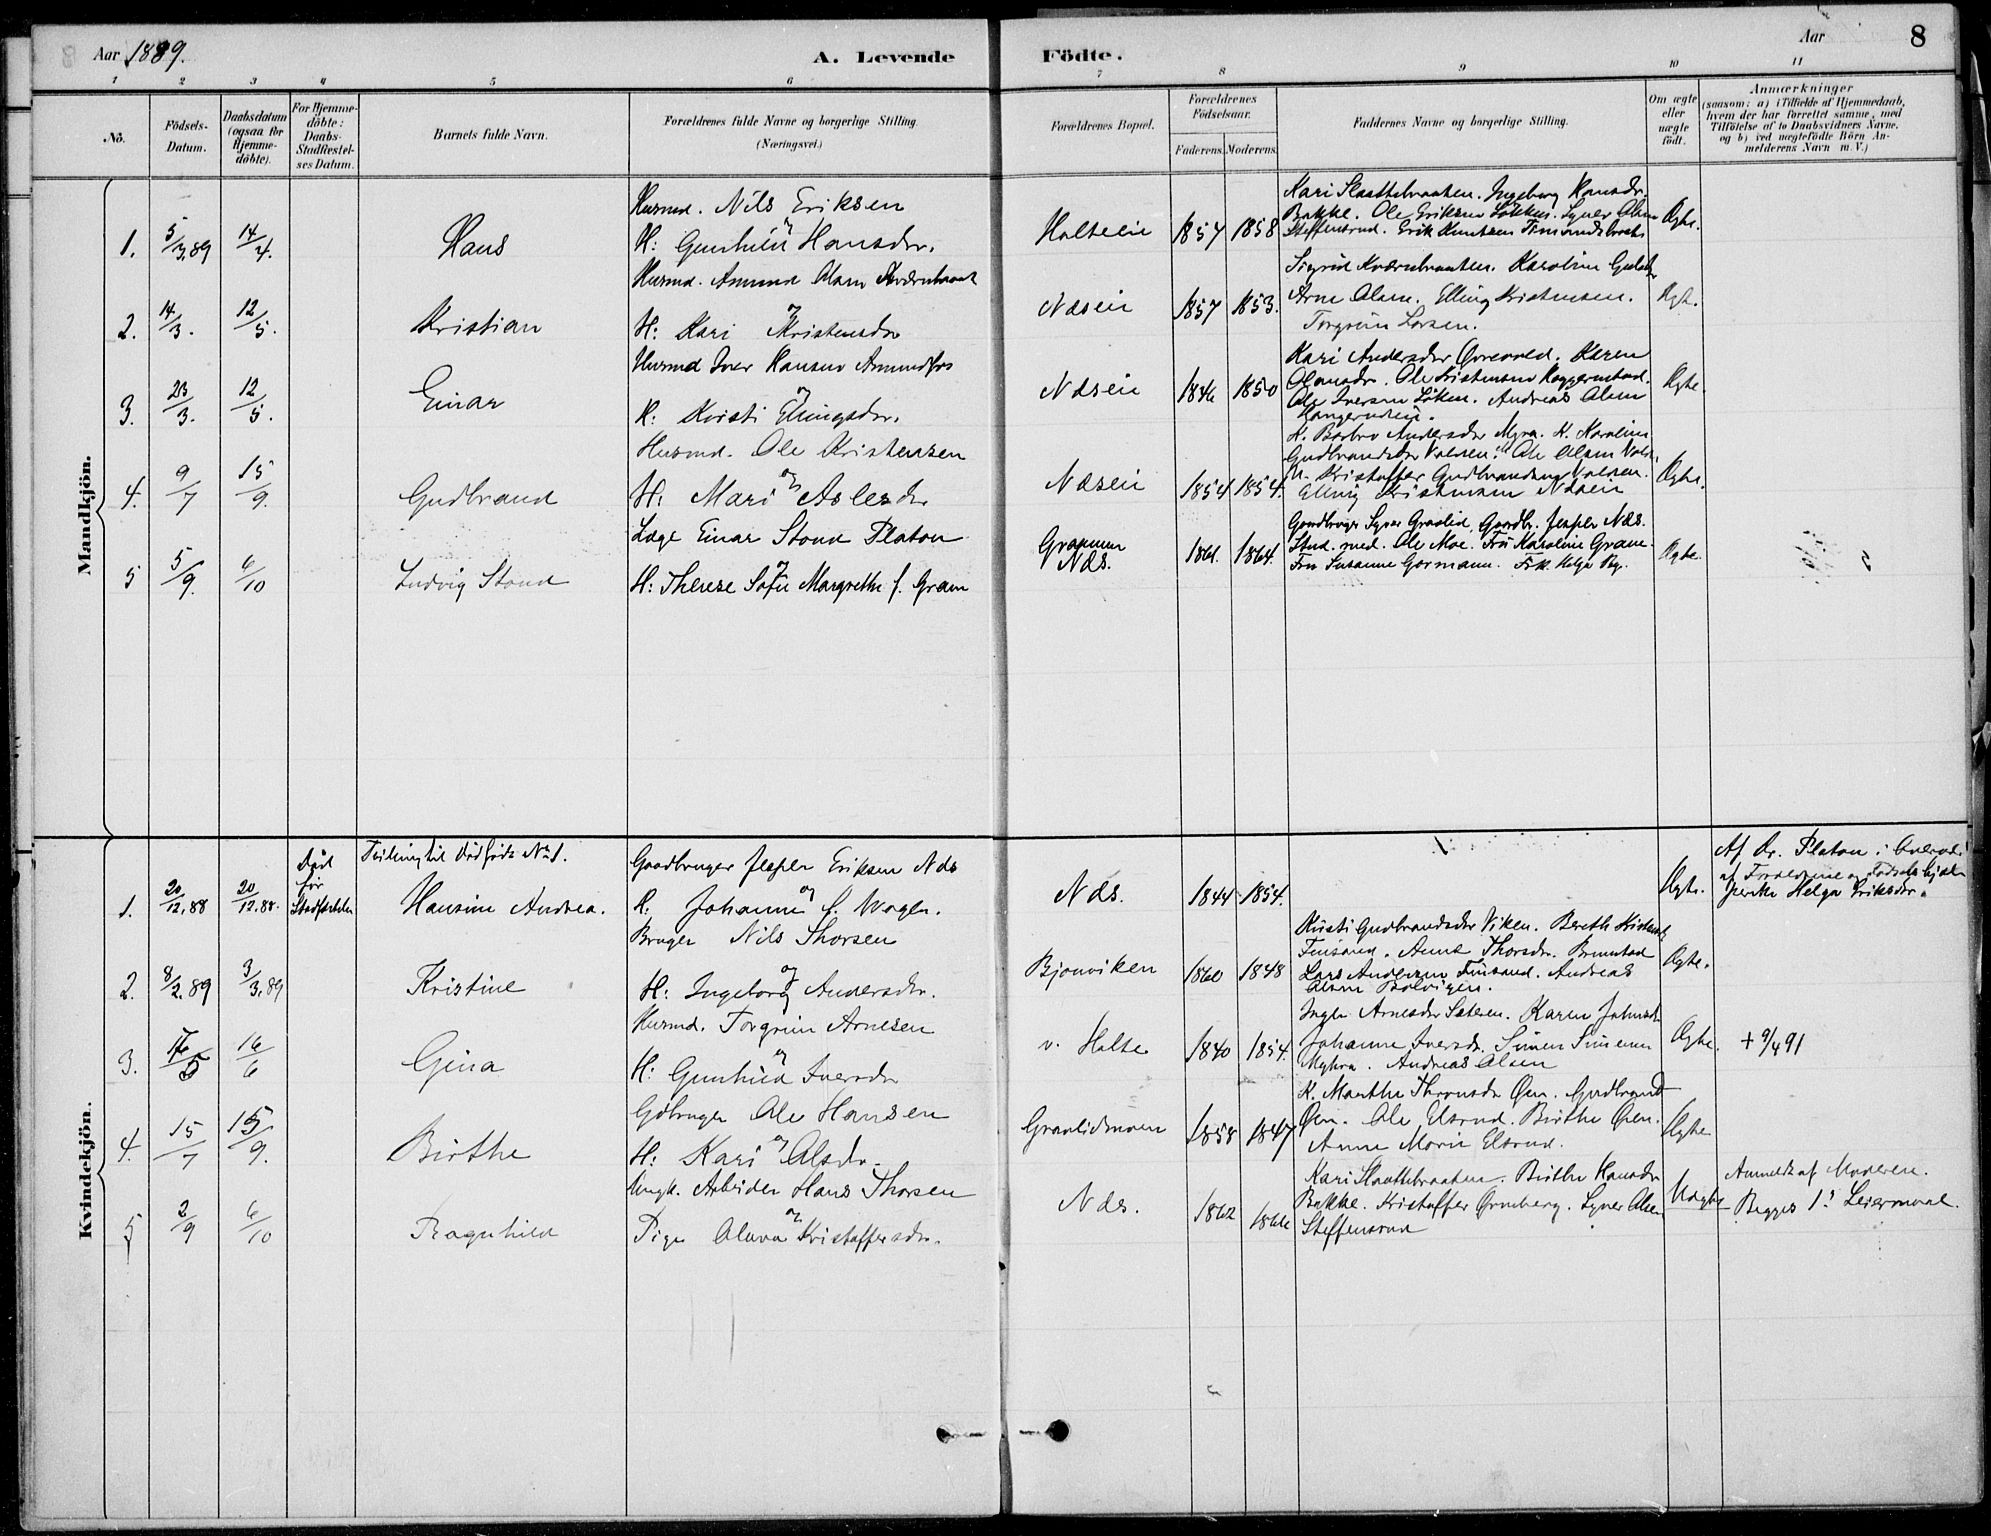 Aar 1889.
A. Levende
Födte.
Aar
8
1 2 3 4 5 6 7 8 9 10 11
No.
Födsels-
Datum.
Daabsdatum
(ogsaa for
Hjemme-
döbte).
For Hjemme-
döbte:
Daabs-
Stadfæstel-
ses Datum.
Barnets fulde Navn.
Forældrenes fulde Navne og borgerlige Stilling.
(Næringsvei.)
Forældrenes Bopæl.
Forældrenes
Födselsaar.
Faderens. Moderens.
Faddernes Navne og borgerlige Stilling.
Om ægte
eller
uægte
født.
Anmærkninger
(saasom: a) i Tilfælde af Hjemmedaab,
hvem der har forrettet samme, med
Tilföielse af to Daabsvidners Navne,
og b) ved uægtefödte Börn An-
melderens Navn m. V.)
Mandkjön.
1. 5/3.89 14/4. Hans
Husmd. Nils Eriksen
og
H: Gunhild Hansdr.
Holteeie 1857 1858
Kari Slaattebraaten. Ingeborg Hansdr.
Bakke. Ole Eriksen Løkken. Syver Olsen
Steffensrud. Erik Knutsen
Ægte.
2. 14/3. 12/5. Kristian
Husmd. Amund Olsen Kværnbraat
og
H: Kari Kristensdr
Næseie 1857 1853.
Sigrid Kværnbraaten. Karoline
Arne Olsen. Elling Kristensen.
Torgrim Larsen.
Ægt.
3. 23/3. 12/5. Einar
Husmd Iver Hansen Amundfos
og
H: Kirsti Ellingsdr.
Næseie 1846 1850
Kari Andersdr Øvrevold. Karen
Olausdr. Ole Kristensen
Ole Iversen Løken. Andreas Olsen
Ægte.
4. 9/7 15/9. Gudbrand
Husmd. Ole Kristensen
og
H: Mari Aslesdr
Næseie 1854 1854.
K. Barbro Andersdr Myra. K. Karoline
Gudbrandsdr Volden. Ole Olsen
Kristoffer Gudbrandsen Volden.
Elling Kristensen Næseie
Ægte.
5 5/9. 6/10 Ludvig Stoud
Læge Einar Stoud Platou
og
H: Therese Sofie Margrethe f. Gram
Næs. 1861. 1864.
Gaardbruger Syver Gravlid, Gaardbr. Jesper Næs.
Stud. med. Ole Moe. Fru Karoline Gram.
Fru Susanne Gormann. Frk. Helga
Ægte.
Kvindekjön.
1. 20/12.88 20/12.88. Død
før
Stadfæstelsen
Tvilling til dødfødt No 1.
Hansine Andrea.
Gaardbruger Jesper Eriksen Næs
og
H. Johanne f. Wagle.
Næs. 1844 1854.
Ægte.
Af Dr. Platou i Overvær
af Forældrene og Fødselshjæl-
perske Helga Eriksdr.
2. 8/2.89 3/3.89 Kristine
Bruger Nils Thorsen
og
H: Ingeborg Andersdr.
Bjonviken 1860 1848
Kirsti Gudbrandsdr Viken. Bereth
Finsand. Anne Thorsdr.
Lars Andersen Finsand. Andreas
Olsen
Ægte.
3. 16/5 16/6 Gina
Husmd. Torgrim Arnesen
og
H: Gunhild Iversdr
v. Holte 1840 1854.
Inger Arnesdr Sæteren. Karen
Johanne Iversdr. Simen Simensen
Myhra. Andreas Olsen
Ægte. + 9/4 91
4. 15/7 15/9. Birthe
Gdbruger Ole Hansen
og
H: Kari Olsdr.
Gravlidmoen 1858 1847
K. Marthe Thronsdr Øen. Gudbrand
Øen. Ole Elsrud. Birthe Øen.
Anne Marie Elsrud.
Ægte
5 2/9 6/10 Ragnhild
Ungk. Arbeider Hans Thorsen
og
Pige Olava Kristoffersdr.
Næs. 1862 1866
Kari Slaattebraaten. Birthe Hansdr
Bakke. Kristoffer Ørneberg. Syver Olsen
Steffensrud
Uægte
Anmeldt af Moderen.
Begges 1s Leiermaal.